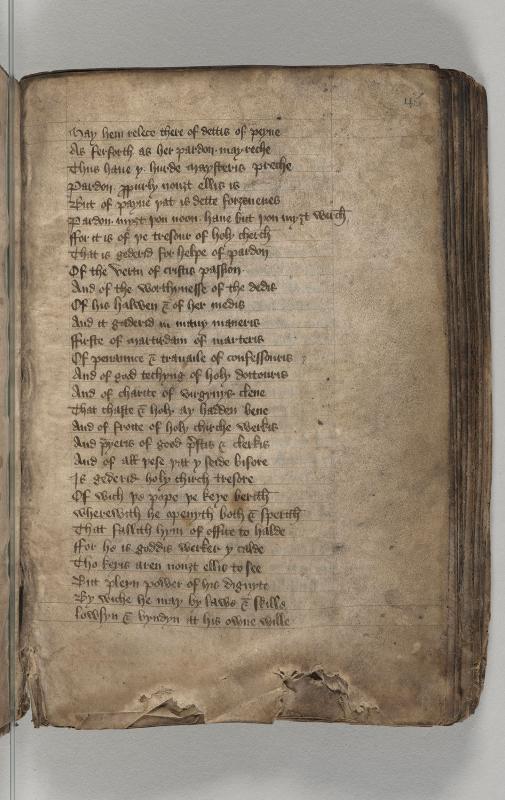 4
May hem relece there of dettis of peyne
As ferforth as her pardon may reche
Thus haue y hurde maysteris preche
Pardon purly nouzt ellis is
But of payne þat is dette forzeuenes
Pardon myzt þou noon haue but þou myzt wirch
ffor it is of þe tresour of holy cherch
That is gederid for helpe of pardon
Of the vertu of cristis passion
And of the worthinesse of the dedis
Of his halwen & of her medis
And it gederid in many maneris
ffirste of martirdam of marteris
Of penaunce & trauaile of confessouris
And of god techyng of holy doctouris
And of charite of virgynys clene
That chaste & holy ay hadden bene
And of froite of holy chirche werkis
And pyeris of good pstis & clerkis
And of all þese þat y seide bifore
Is gederid holy chirch tresore
Of wich þe pope þe keye berith
wherewith he openyth both & sperith
That fallith hym of office to halde
ffor he is goddis werker y calde
Tho keyis aren nouzt ellis to see
But pleyn power of his dignyte
By wiche he may by laws & skille
lowsyn & byndyn at his owne wille